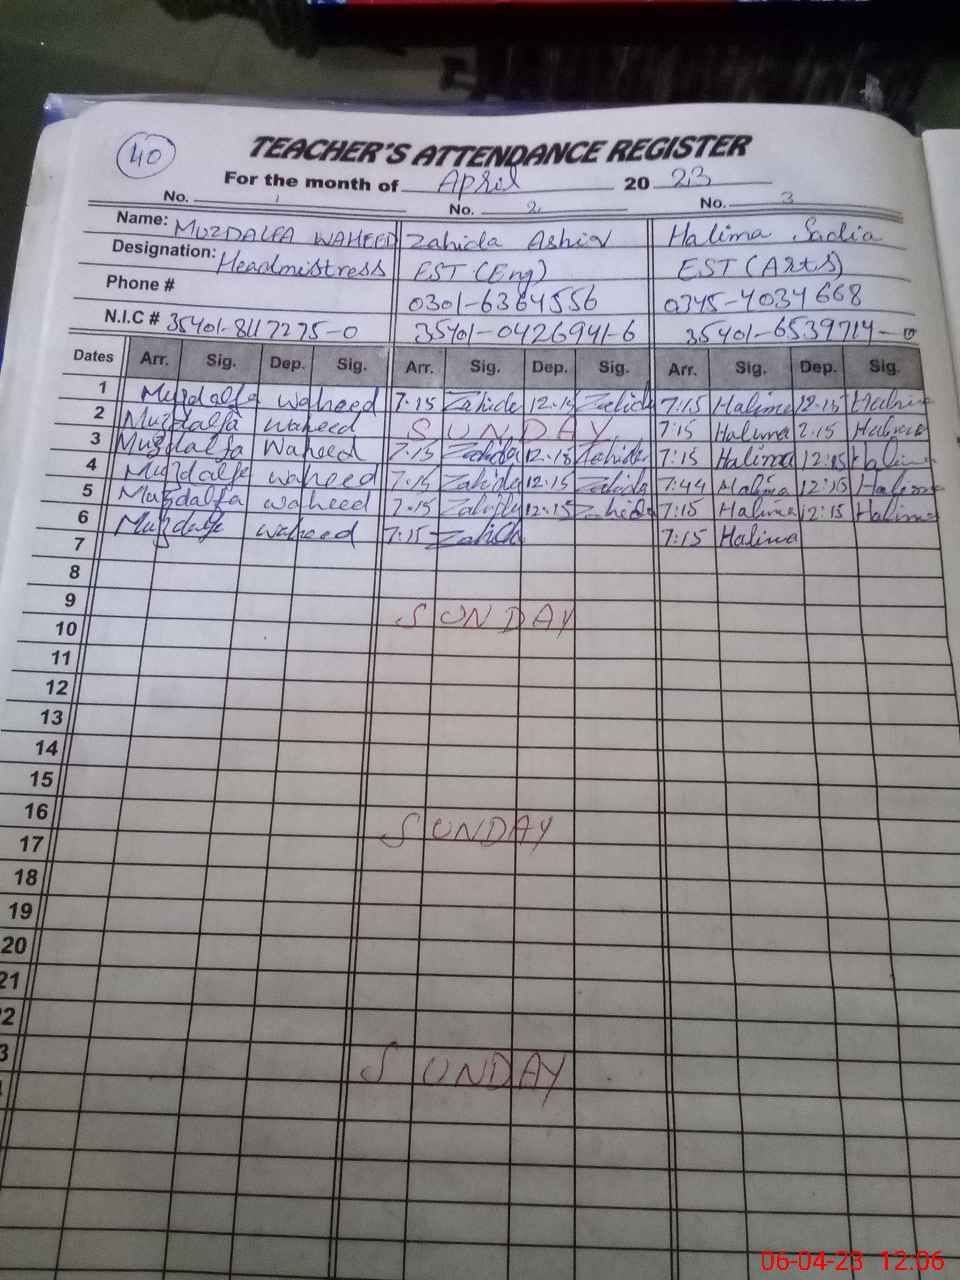 40
TEACHER'S ATTENDANCE REGISTER
For the month of April 2023
No. 1 No. 2 No. 3
Name: MUZDALFA WAHEED Zahida Ashiq Halima Sadia
Designation: Headmistress EST (Eng) EST (Arts)
Phone # 0301-6364556 0345-4034668
N.I.C # 35401-8117275-0 35401-0426941-6 35401-6539714-0
Dates Arr. Sig. Dep. Sig. Arr. Sig. Dep. Sig. Arr. Sig. Dep. Sig.
1 Muzdalfa Waheed 7.15 Zahida 12.15 Zahida 7:15 Halima 12:15 Halima
2 Muzdalfa Waheed SUNDAY 7:15 Halima 2:15 Halima
3 Muzdalfa Waheed 7.15 Zahida 12.15 Zahida 7:15 Halima 12:15 Halima
4 Muzdalfa Waheed 7.15 Zahida 12.15 Zahida 7:44 Halima 12:15 Halima
5 Muzdalfa Waheed 7.15 Zahida 12.15 Zahida 7:15 Halima 12:15 Halima
6 Muzdalfa Waheed 7:15 Zahida 7:15 Halima
7
8
9 SUNDAY
10
11
12
13
14
15
16 SUNDAY
17
18
19
20
21
2
3 SUNDAY
06-04-23 12:06